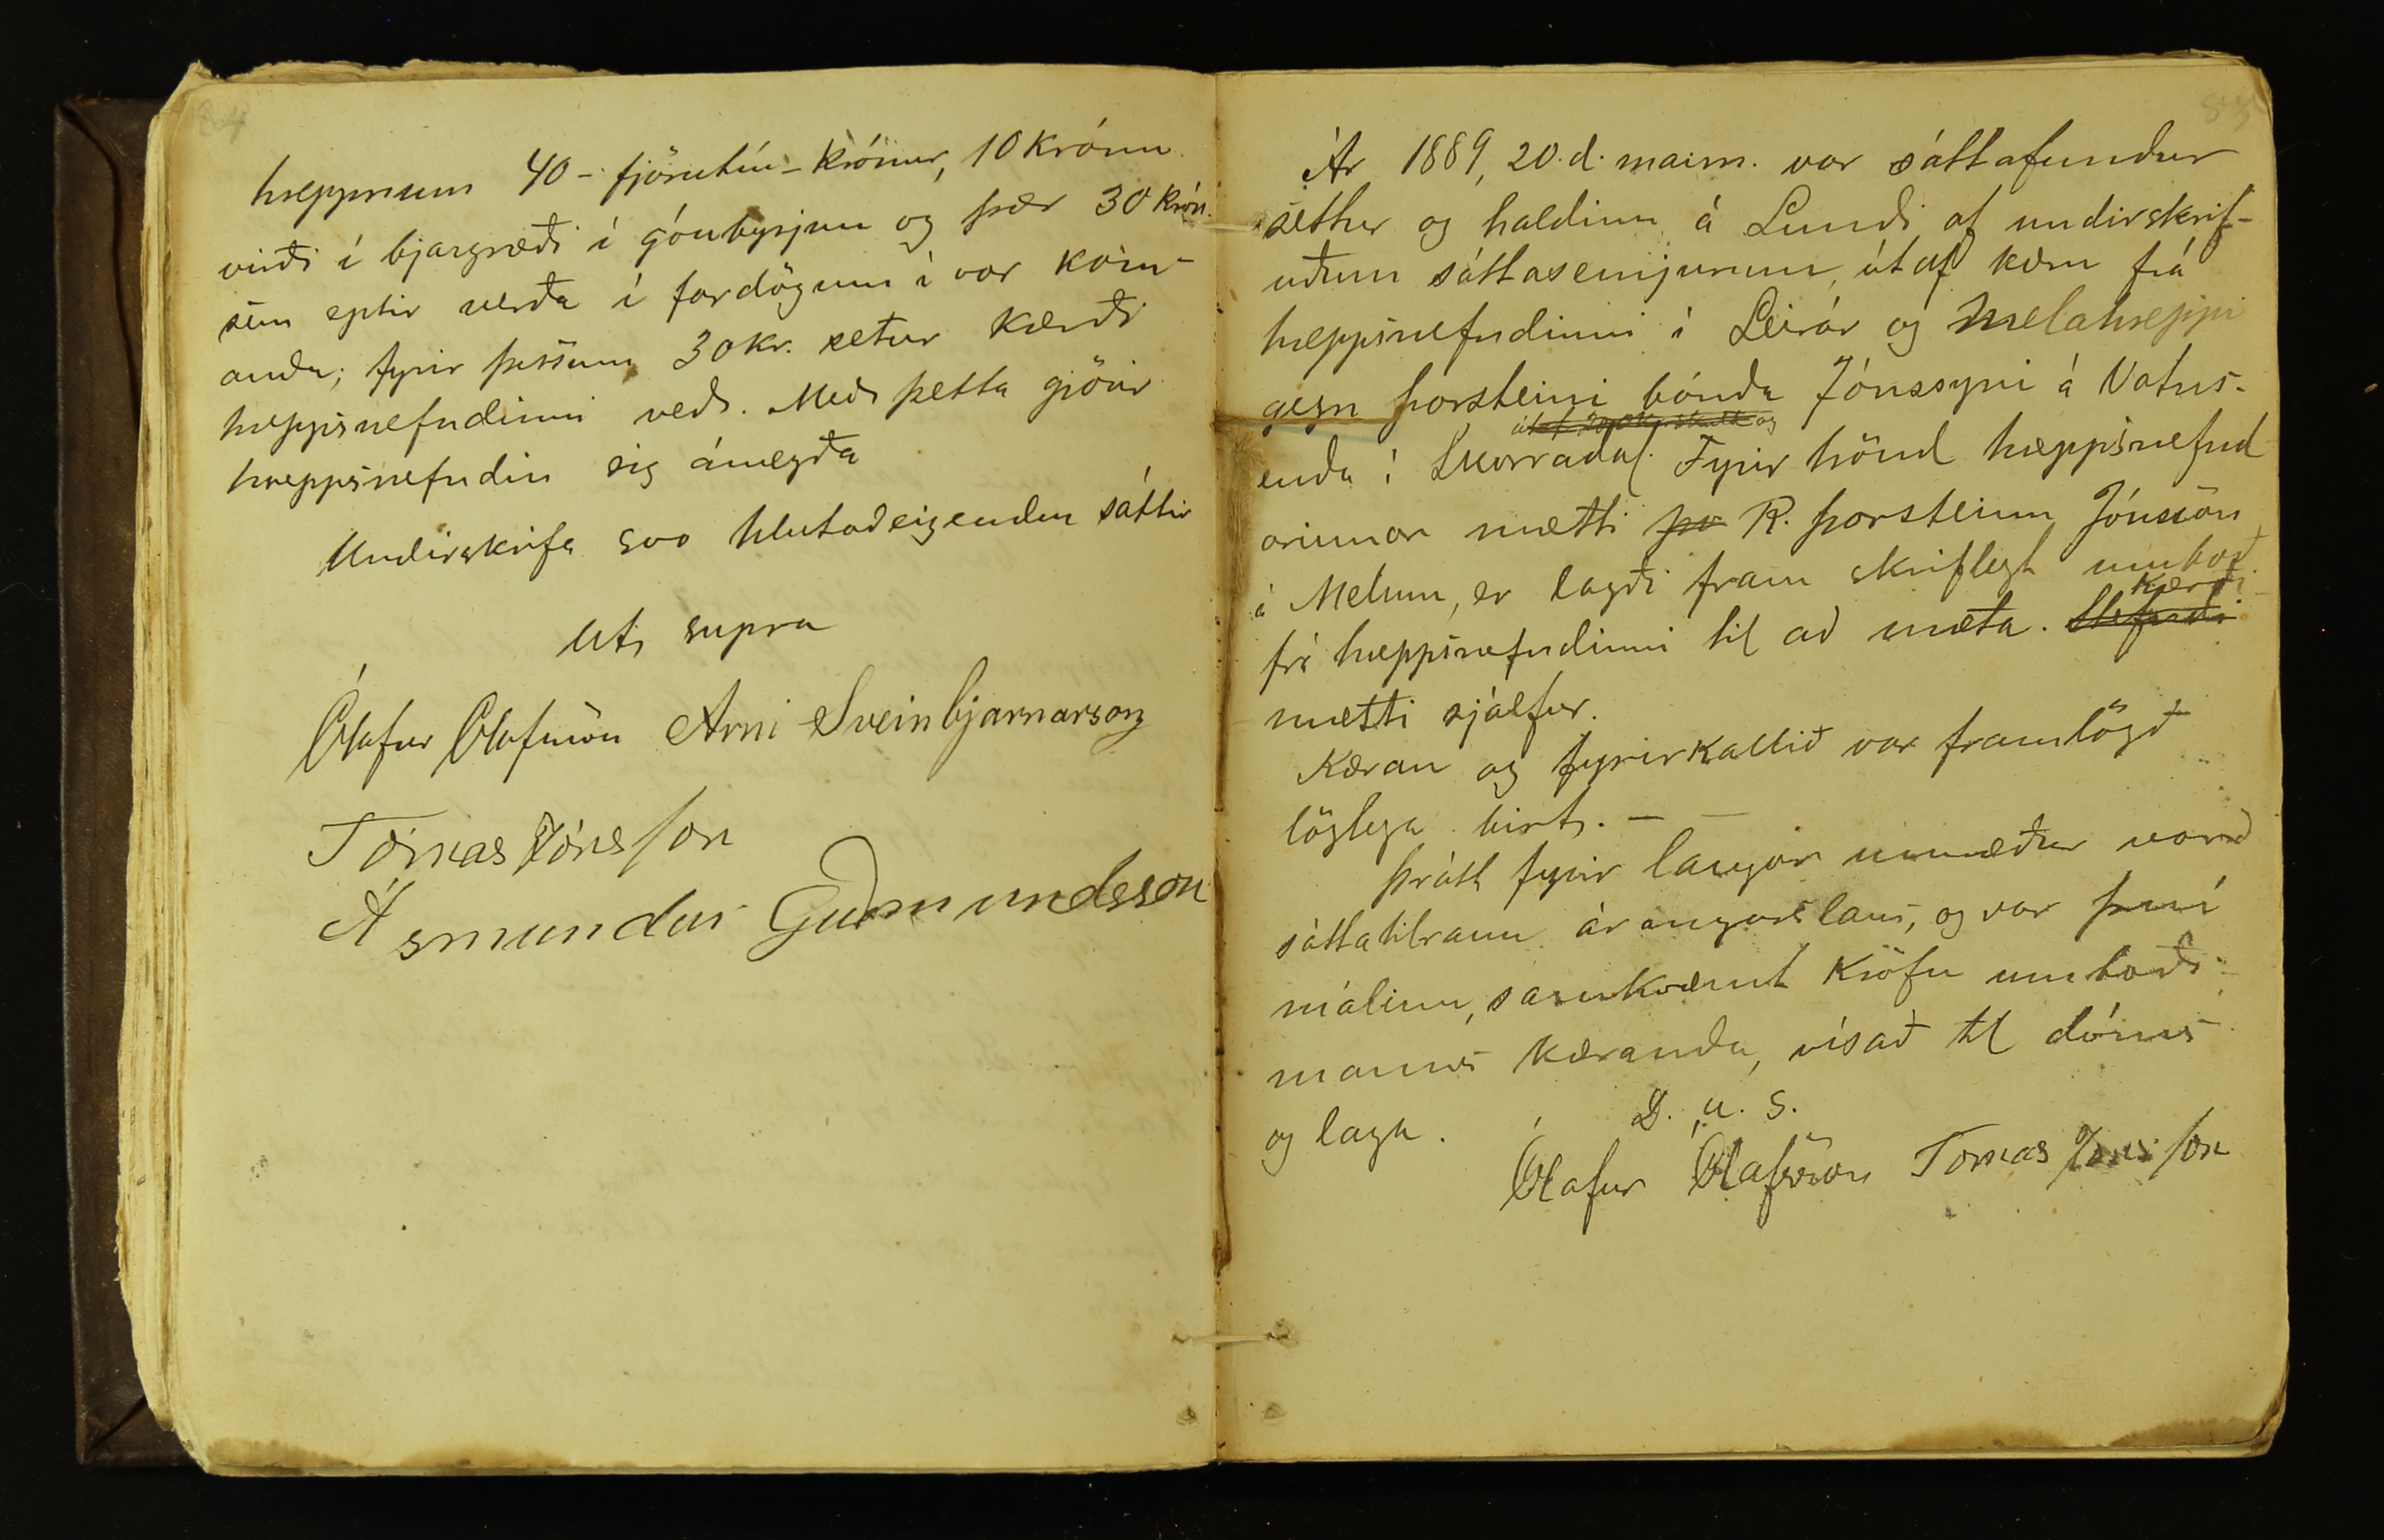 84
hreppnum 40 - fjörutíu - krónur, 10 krónu
virði í bjargræði í góubyrjun og þær 30 krón.
sem eptir verða í fardögum í vor kom-
anda; fyrir þessum 30 kr. setur kærði
hreppsnefndinni veð. Með þetta gjörir
hreppsnefndin sig ánægða
Undirskrifa svo hlutaðeigendur sáttir
Ut supra
Ólafur Ólafsson Arni Sveinbjarnarson
Tómas Jónsson
Ásmundur Guðmundsson
Ár 1889, 20. d. maím. var sáttafundur
settur og haldinn á Lundi af undirskrif-
uðum sáttasemjurum, útaf kæru frá
hreppsnefndinni í Leirár og Melahreppi
gegn þorsteini bónda Jónssyni á Vatns-
enda í Skorradal. Fyrir hönd hreppsnefnd
arinnar mætti þo R. þorsteinn Jónsson
á Melum, er lagði fram skriflegt umboð
kærði
frá hreppsnefndinni til að mæta.
mætti sjálfur.
Kæran og fyrirkallið var framlögð
löglega birt. —
þrátt fyrir langar umræður varð
sáttatilraun árangurslaus, og var því
málinu, samkvæmt kröfu umboðs-
manns kæranda, vísað til dóms
og laga.
D. u. s.
Ólafur Ólafsson Tomas Jónsson